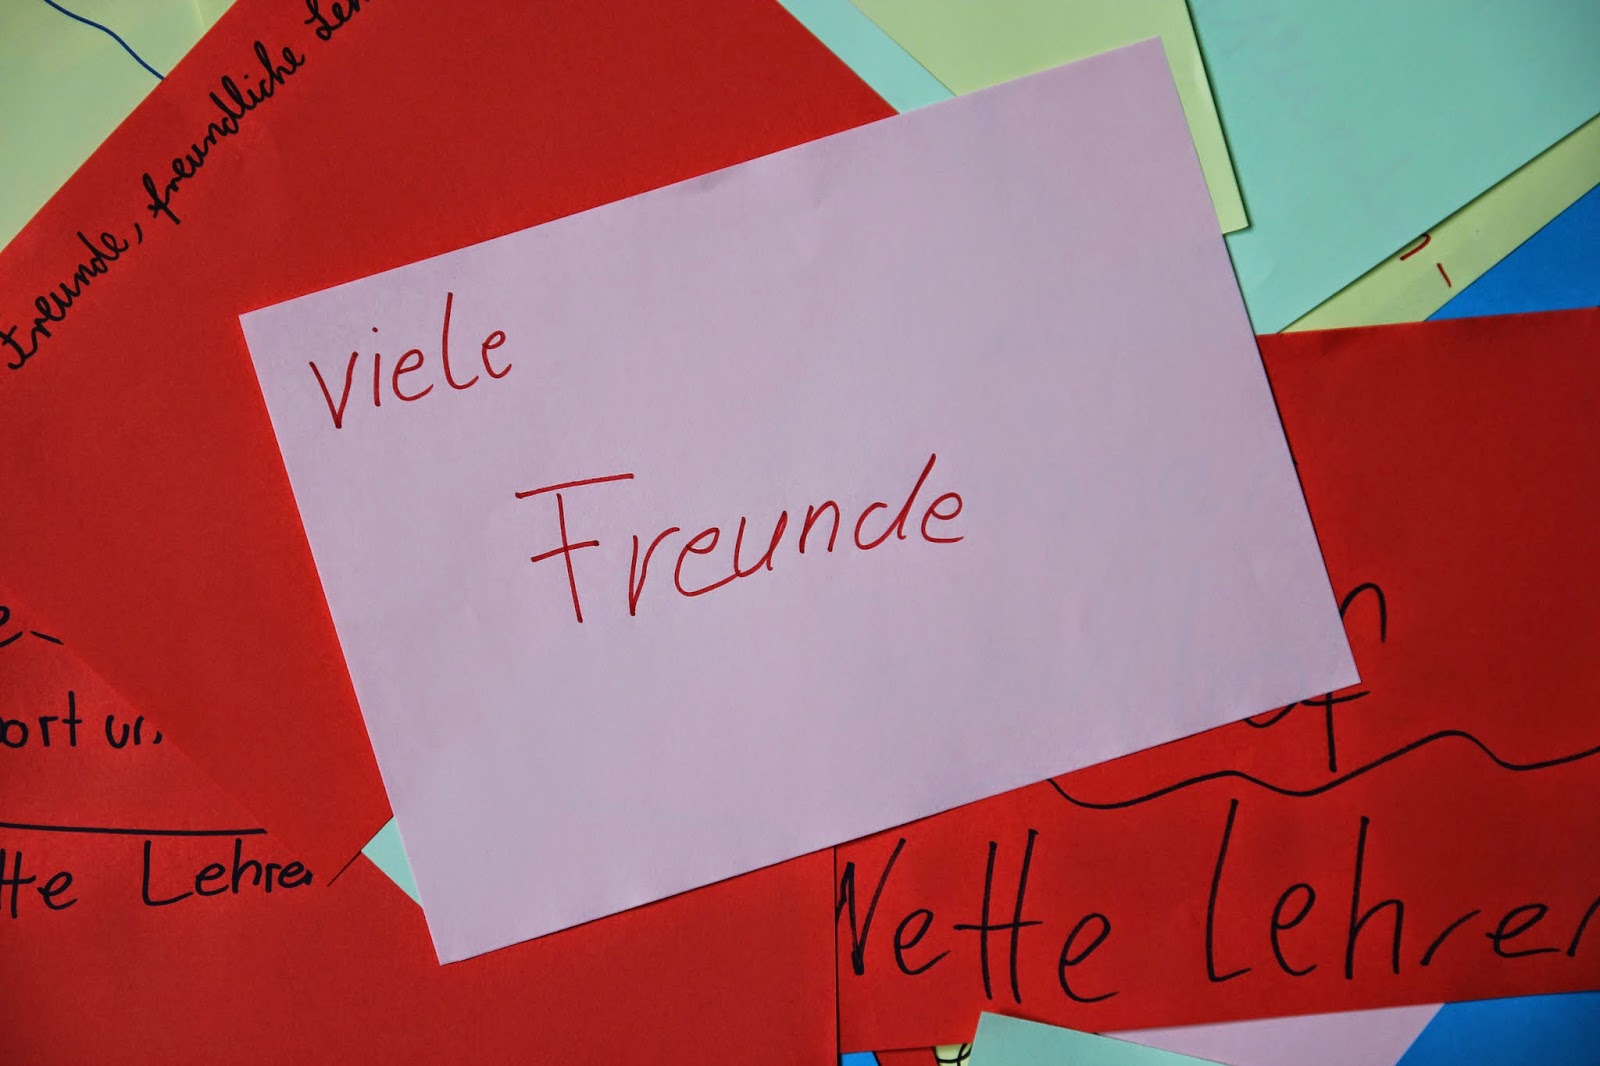 Freunde, freundliche
viele
Freunde
ur.
Lehrer
Nette Lehrer